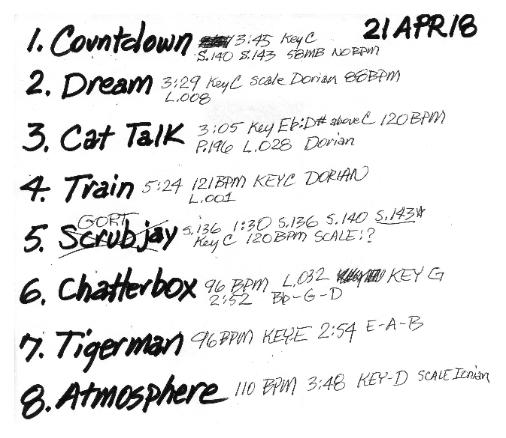 21 APR 18
1. Countdown 3:45 Key C
S.140 S.143 58MB NO BPM
2. Dream 3:29 Key C Scale Dorian 86BPM
L.008
3. Cat Talk 3:05 Key Eb:D# above C 120 BPM
P.196 L.028 Dorian
4. Train 5:24 121BPM KEY C DORIAN
L.001
GORT
5. Scrub jay S.136 1:30 S.136 S.140 S.143*
Key C 120BPM SCALE:?
6. Chatterbox 96 BPM L.032 KEY G
2:52 Bb-G-D
7. Tigerman 96BPM KEY E 2:54 E-A-B
8. Atmosphere 110 BPM 3:48 KEY-D SCALE Ionian